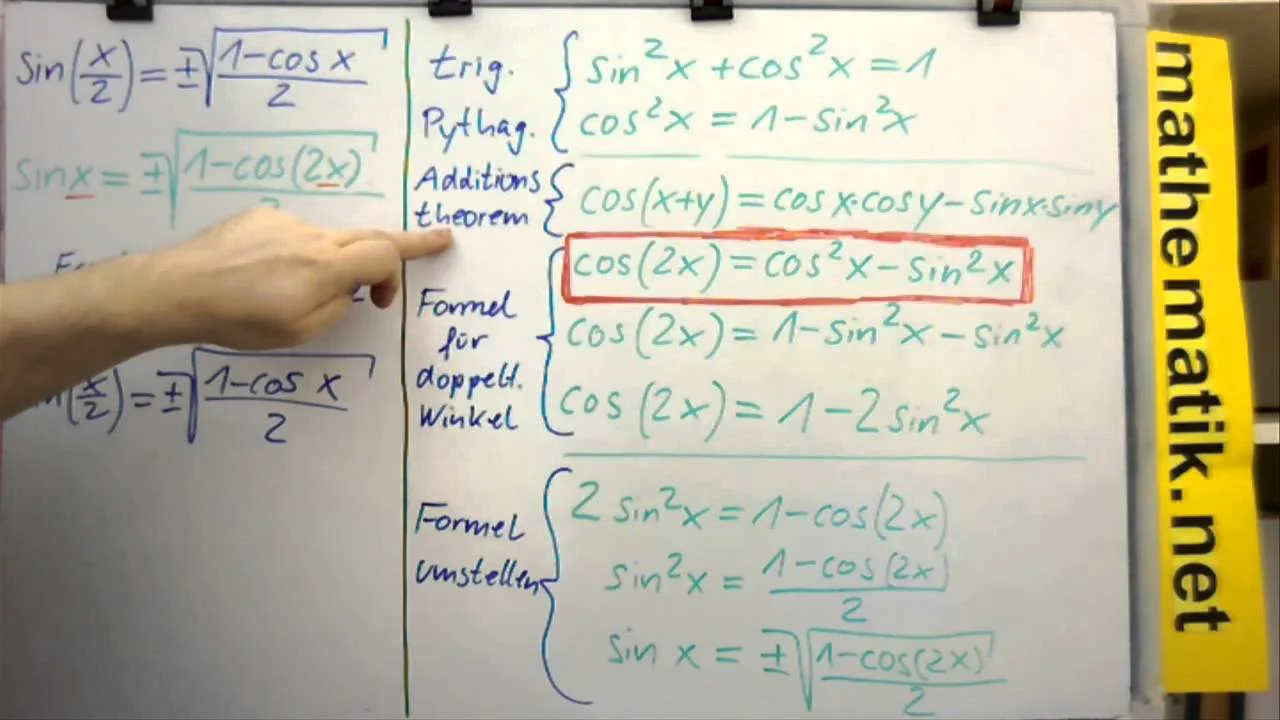 sin(x/2) = ±√((1-cos x)/2)
sin x = ±√((1-cos(2x))/2)
(x/2) = ±√((1-cos x)/2)
trig.
Pythag.
sin²x + cos²x = 1
cos²x = 1 - sin²x
Additions
theorem
cos(x+y) = cos x·cos y - sin x·sin y
Formel
für
doppelt.
Winkel
cos(2x) = cos²x - sin²x
cos(2x) = 1 - sin²x - sin²x
cos(2x) = 1 - 2 sin²x
Formel
umstellen
2 sin²x = 1 - cos(2x)
sin²x = (1-cos(2x))/2
sin x = ±√((1-cos(2x))/2)
mathematik.net